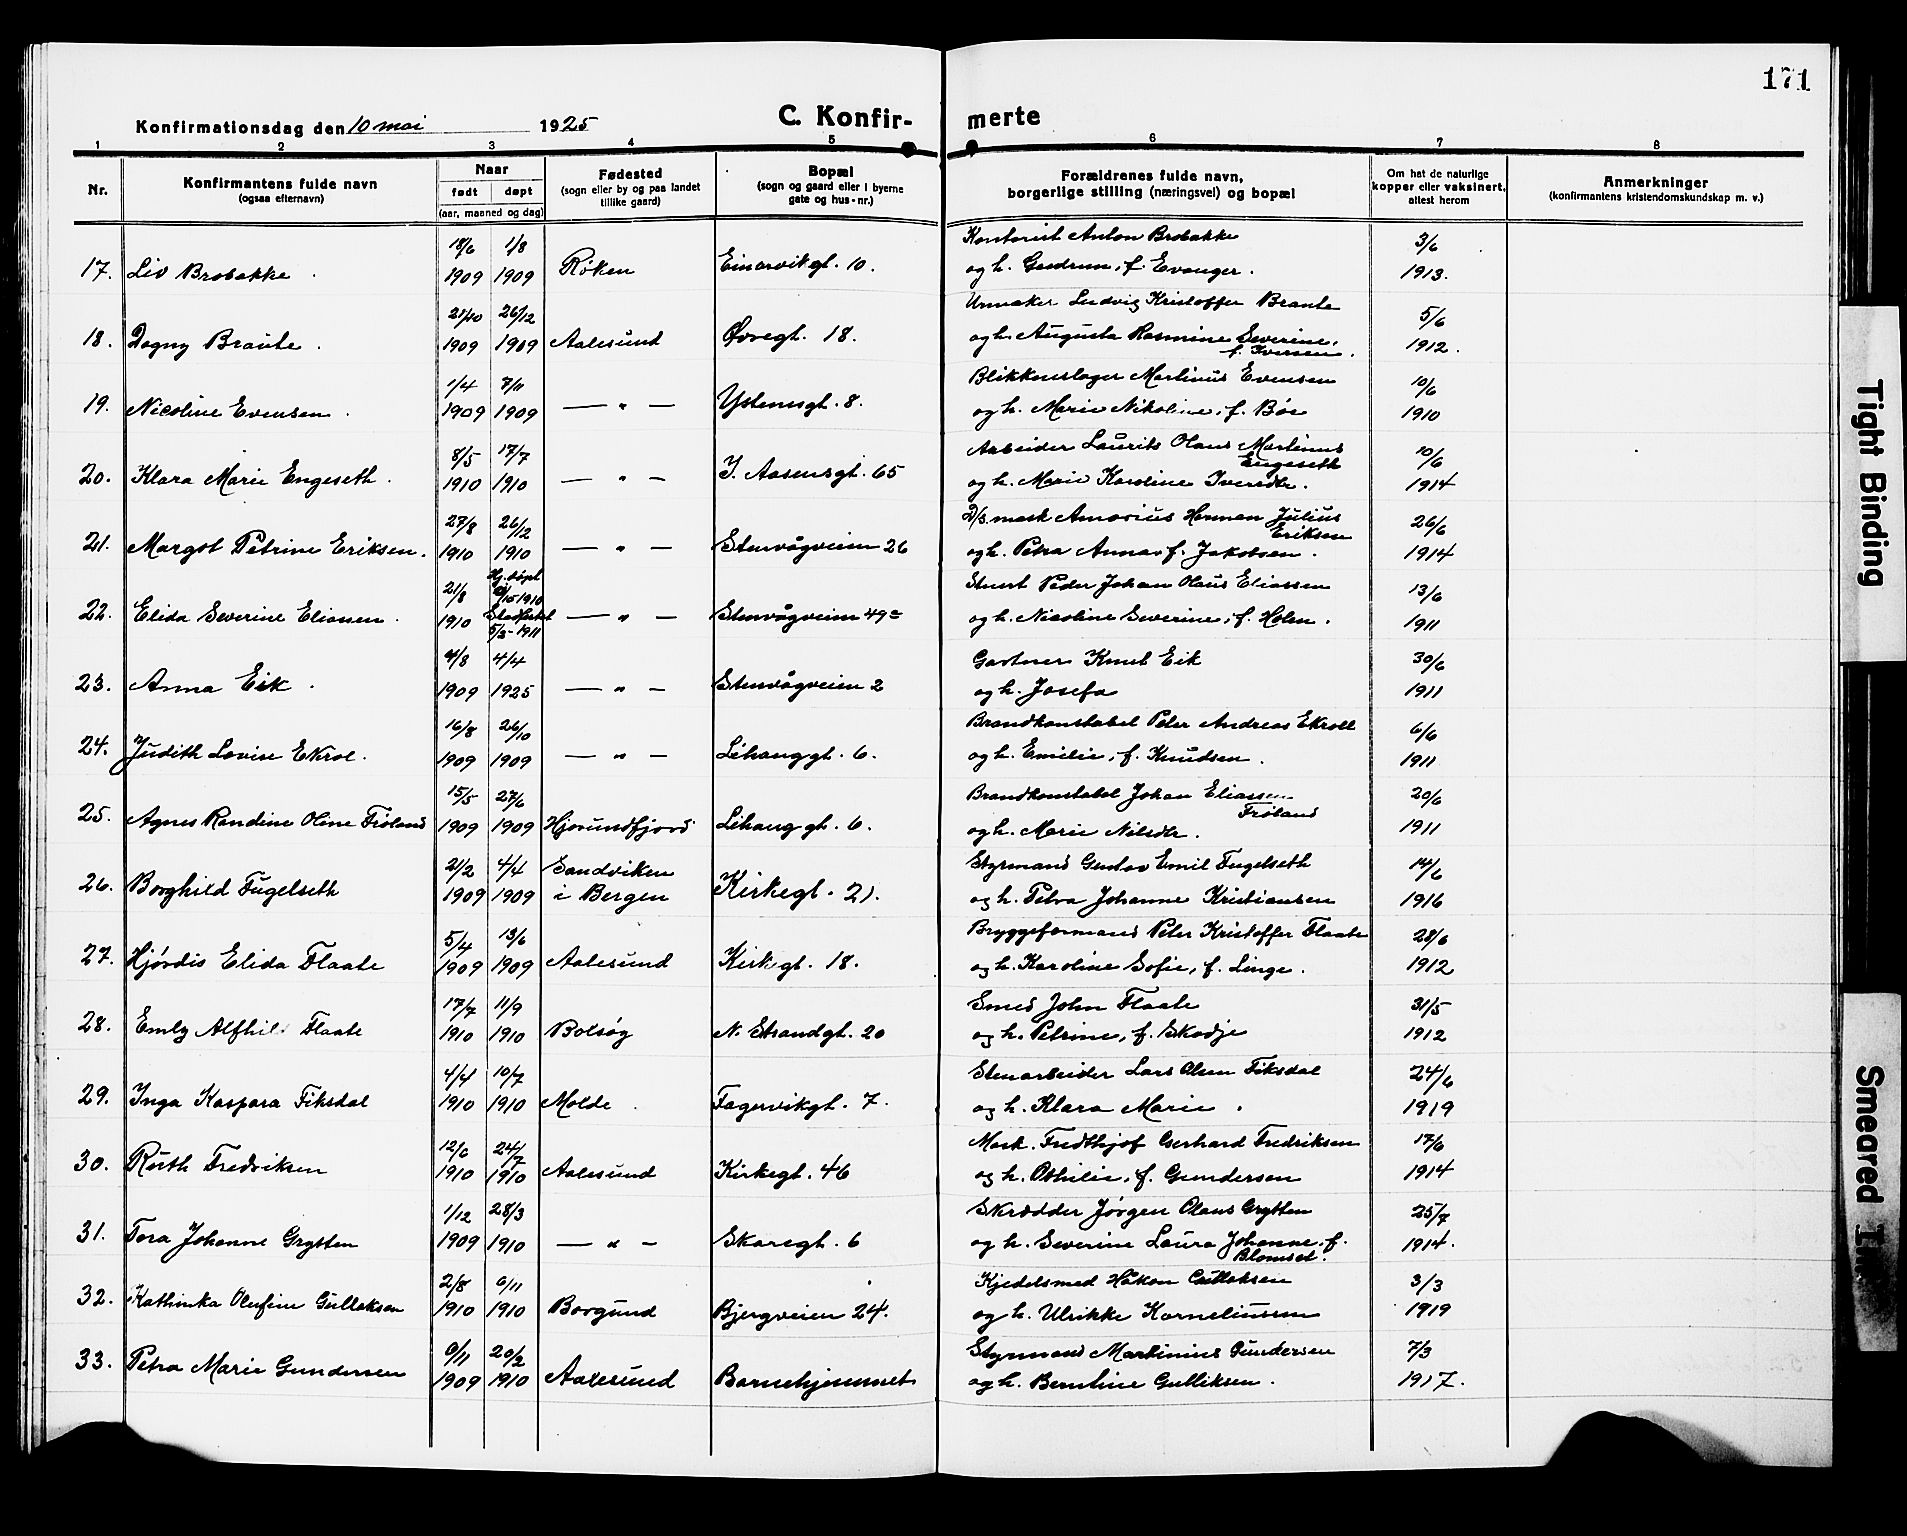 171
Konfirmationsdag den 10 mai 1925
C. Konfir-
merte
1 2 3 4 5 6 7 8
Nr.
Konfirmantens fulde navn
(ogsaa efternavn)
Naar
født døpt
(aar, maaned og dag)
Fødested
(sogn eller by og paa landet
tillike gaard)
Bopæl
(sogn og gaard eller i byerne
gate og hus-nr.)
Forældrenes fulde navn,
borgerlige stilling (næringsvei) og bopæl
Om hat de naturlige
kopper eller vaksinert,
attest herom
Anmerkninger
(konfirmantens kristendomskundskap m. v.)
18/6 1/8 Kontorist Anton Brobakke 3/6
17. Liv Brobakke . 1909 1909 Røken Einarvikgt. 10. og h. Gudrun, f. Evanger. 1913.
21/10 26/12 Urmaker Ludvig Kristoffer Braute 5/6
18. Dagny Braute . 1909 1909 Aalesund Øvregt. 18. og h. Augusta Rasmine Severine, 1912.
f. Iversen.
1/4 7/11 Blikkenslager Martinus Evensen 10/6
19. Nicoline Evensen . 1909 1909 — " — Ystenesgt. 8. og h. Marie Nikoline, f. Bøe 1910
8/5 17/7 Arbeider Laurits Olaus Martinus 10/6
Engeseth
20. Klara Marie Engeseth . 1910 1910 — " — I. Aasensgt. 65 og h. Marie Karoline Iversdtr. 1914
27/8 26/12 D/s. mask Amorius Herman Julius 26/6
Eriksen
21. Margot Petrine Eriksen. 1910 1910 — " — Stenvågveien 26 og h. Petra Anna, f. Jakobsen . 1914
21/8 Hj. døpt Stuert Peder Johan Olaus Eliassen 13/6
22. Elida Severine Eliassen . 1910 Stadfestet 5/3-1911 — " — Stenvågveien 49a og h. Nicoline Severine, f. Holm . 1911
4/8 4/4 Gartner Knut Eik 30/6
23. Anna Eik . 1909 1925 — " — Stenvågveien 2 og h. Josefa 1911
16/8 26/10 Brandkonstabel Peter Andreas Ekroll 6/6
24. Judith Lovise Ekrol. 1909 1909 — " — Lihauggt. 6. og h. Emilie, f. Knudsen . 1911
15/5 27/6 Brandkonstabel Johan Eliassen 20/6
Frøland
25. Agnes Randine Oline Frøland 1909 1909 Hjørundfjord Lihauggt. 6. og h. Marie Nilsdtr. 1911
21/2 4/4 Sandviken Styrmand Gustav Emil Fugelseth 14/6
26. Borghild Fugelseth 1909 1909 i Bergen Kirkegt. 21. og h. Petra Johanne Kristiansen 1916
5/4 13/6 Bryggeformand Peter Kristoffer Flaate 28/6
27. Hjørdis Elida Flaate 1909 1909 Aalesund Kirkegt. 18. og h. Karoline Sofie, f. Linge. 1912
17/7 11/9 Smed John Flaate 31/5
28. Emly Alfhild Flaate 1910 1910 Bolsøy N. Strandgt. 20 og h. Petrine, f. Skodje 1912
4/4 10/7 Stenarbeider Lars Olsen Fiksdal 24/6
29. Inga Kaspara Fiksdal 1910 1910 Molde . Fagervikgt. 7. og h. Klara Marie . 1919
12/6 24/7 Mask. Fridthjof Gerhard Fredriksen 17/6
30. Ruth Fredriksen 1910 1910 Aalesund Kirkegt. 46 og h. Othilie, f. Gundersen 1914
1/12 28/3 Skrædder Jørgen Olaus Grytten 25/7
31. Tora Johanne Grytten 1909 1910 — " — Skaregt. 6 og h. Severine Laura Johanne, f. 1914.
Blomset.
2/8 6/11 Kjedelsmed Håkon Gulloksen 3/3
32. Kathinka Olufine Gulloksen 1910 1910 Borgund Bjergveien 24. og h. Ulrikke Korneliussen 1919
6/11 20/2 Styrmand Martinius Gundersen 7/3
33. Petra Marie Gundersen 1909 1910 Aalesund Barnehjemmet og h. Berntine Gulliksen . 1917.
Tight Binding
Smeared Ink